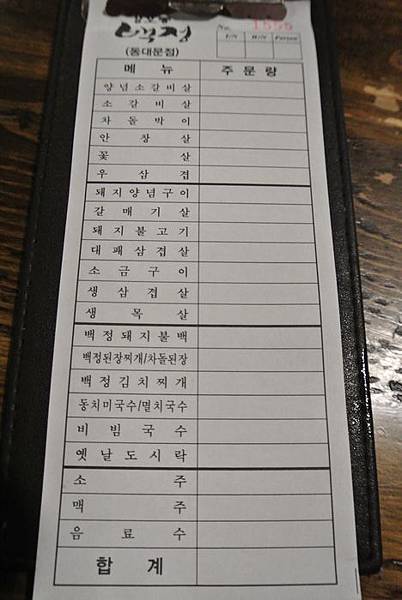 백정
No. 1555
(동대문점)
T/N H/N Person
메뉴 주문량
양념소갈비살
소갈비살
차돌박이
안창살
꽃살
우삼겹
돼지양념구이
갈매기살
돼지불고기
대패삼겹살
소금구이
생삼겹살
생목살
백정돼지불백
백정된장찌개/차돌된장
백정김치찌개
동치미국수/멸치국수
비빔국수
옛날도시락
소주
맥주
음료수
합계